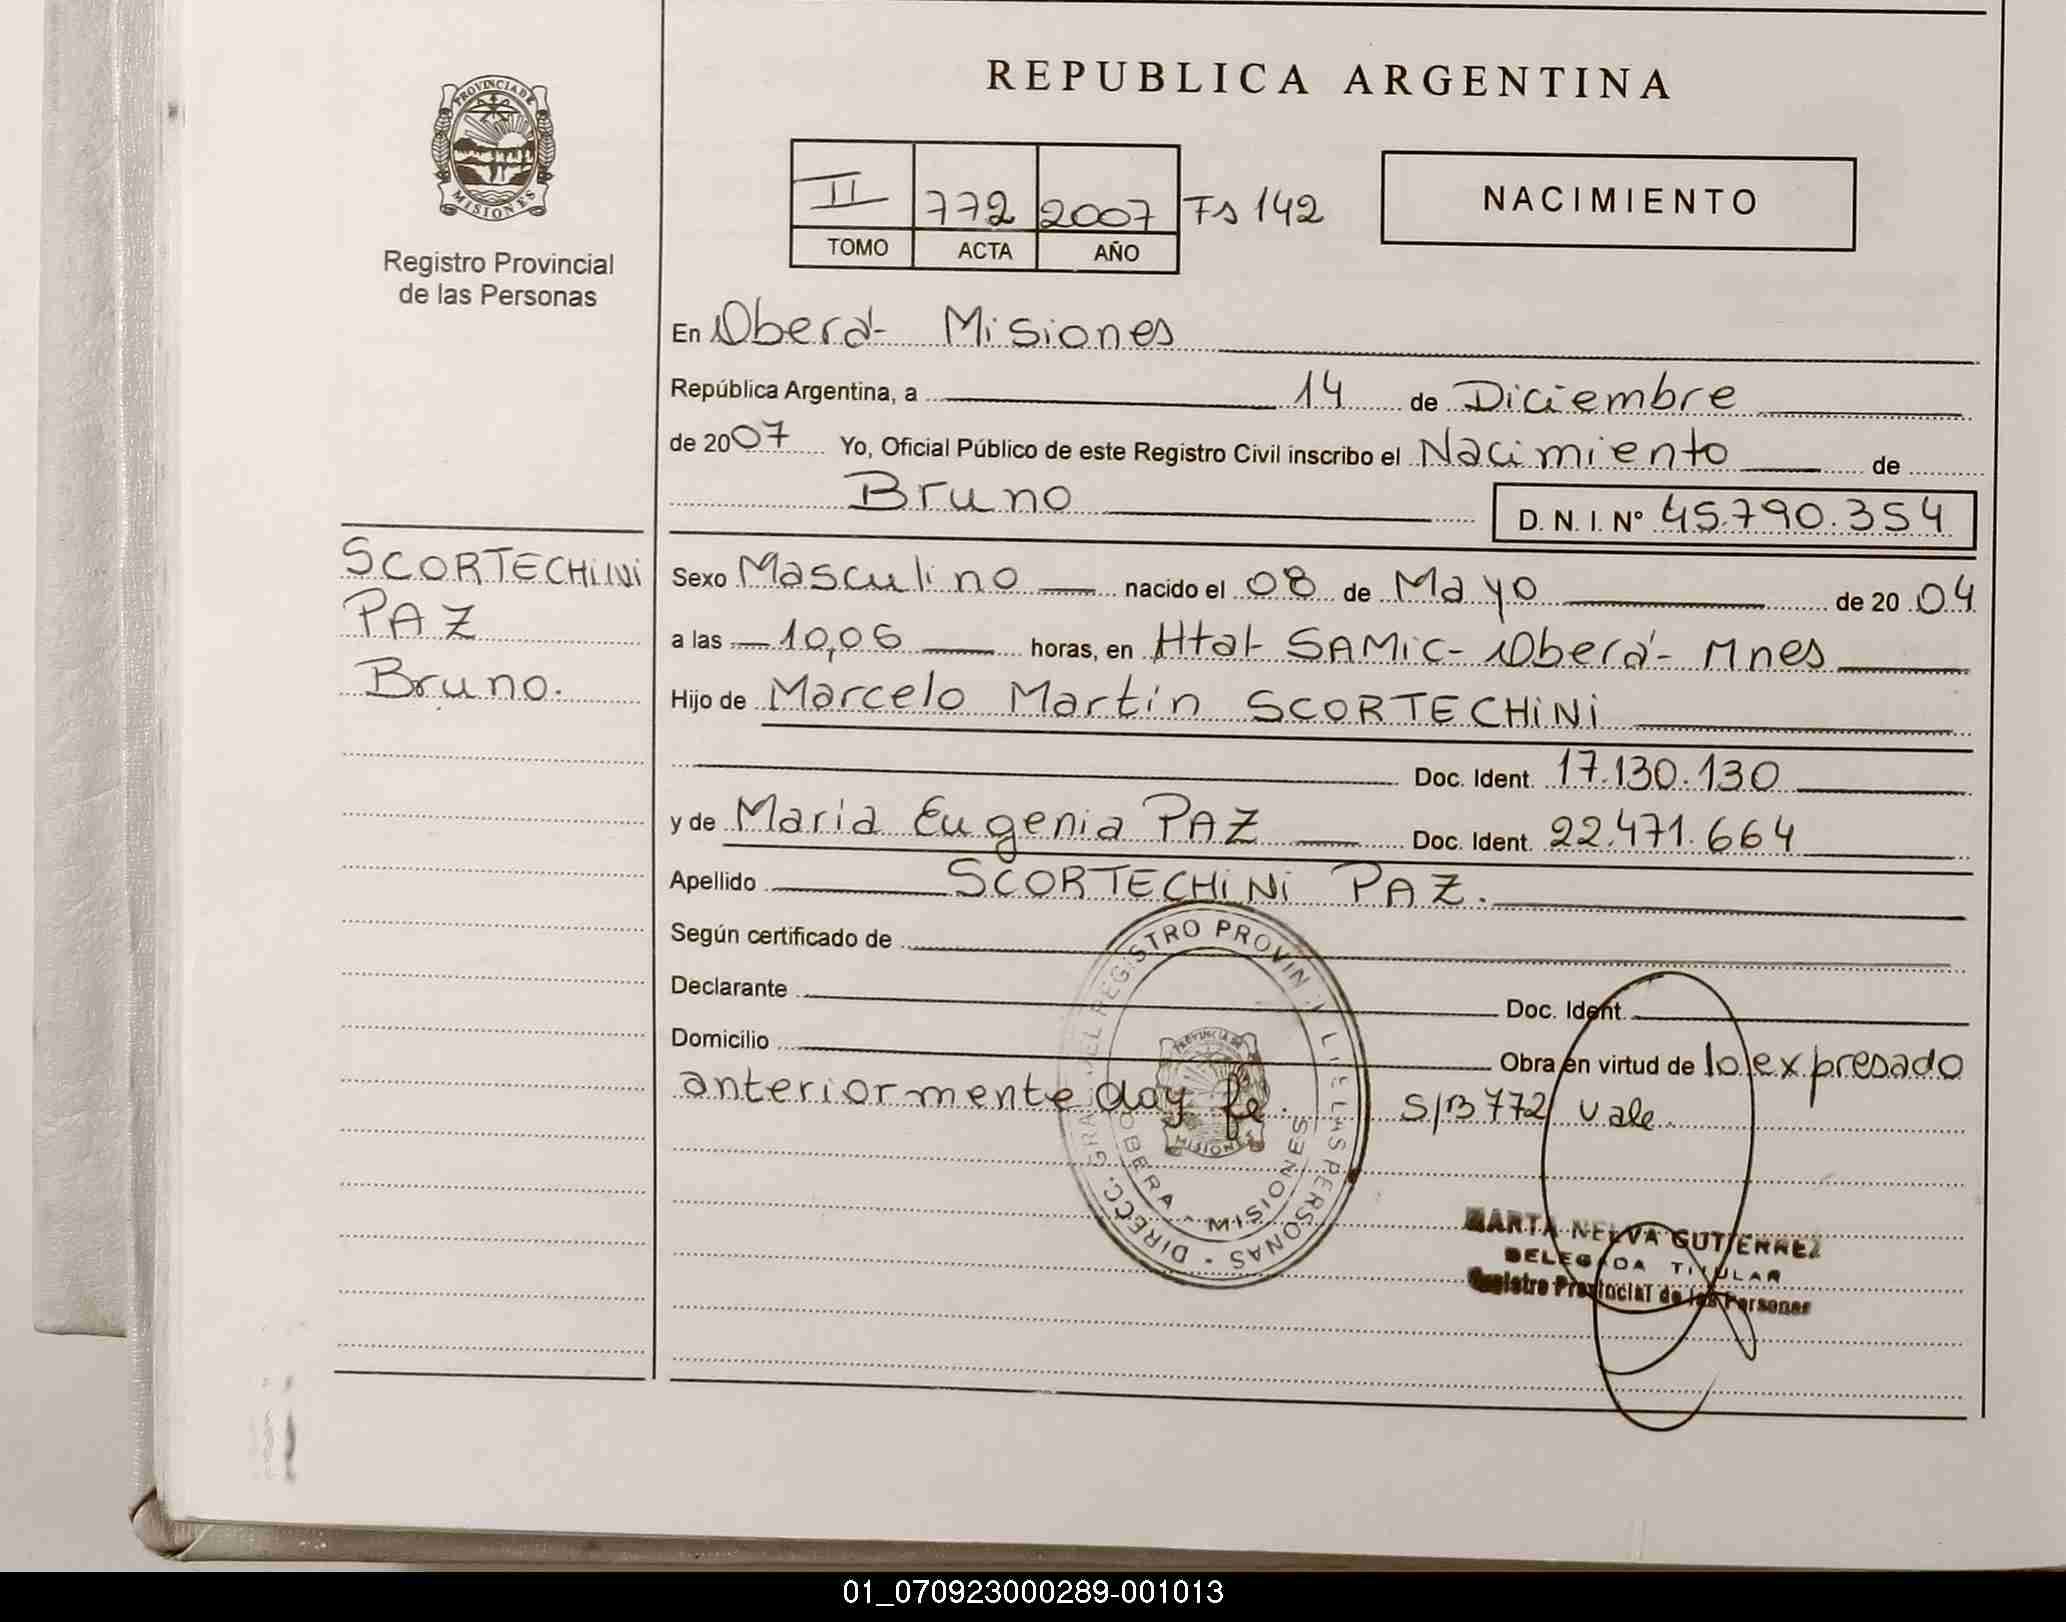 REPUBLICA ARGENTINA
PROVINCIA DE
MISIONES
Registro Provincial
de las Personas
II 772 2007 Fs 142
TOMO ACTA AÑO
NACIMIENTO
En Oberá- Misiones
República Argentina, a 14 de Diciembre
de 2007 Yo, Oficial Público de este Registro Civil inscribo el Nacimiento de
Bruno D. N. I. Nº 45.790.354
SCORTECHiNi
PAZ
Bruno.
Sexo Masculino nacido el 08 de Mayo de 2004
a las 10,06 horas, en Htal SAMiC- Oberá- Mnes
Hijo de Marcelo Martin SCORTECHiNi
Doc. Ident. 17.130.130
y de Maria Eugenia PAZ Doc. Ident. 22.471.664
Apellido SCORTECHiNi PAZ.
Según certificado de
Declarante Doc. Ident.
Domicilio Obra en virtud de lo expresado
anteriormente doy fe. S/B 772 vale
DIRECC. GRAL. DEL REGISTRO PROVINCIAL DE LAS PERSONAS
PROVINCIA DE
MISIONES
OBERA - MISIONES
MARTA NELVA GUTIERREZ
DELEGADA TITULAR
Registro Provincial de las Personas
01_070923000289-001013